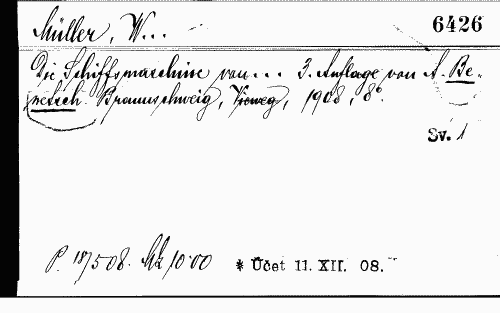 Müller, W... 6426
Die Schiffsmaschine von... 3. Auflage von A. Be-
netsch. Braunschweig, Vieweg, 1908, 8°.
Sv. 1
P. 18/5 08. Mk 10·00 * Účet 11. XII. 08.